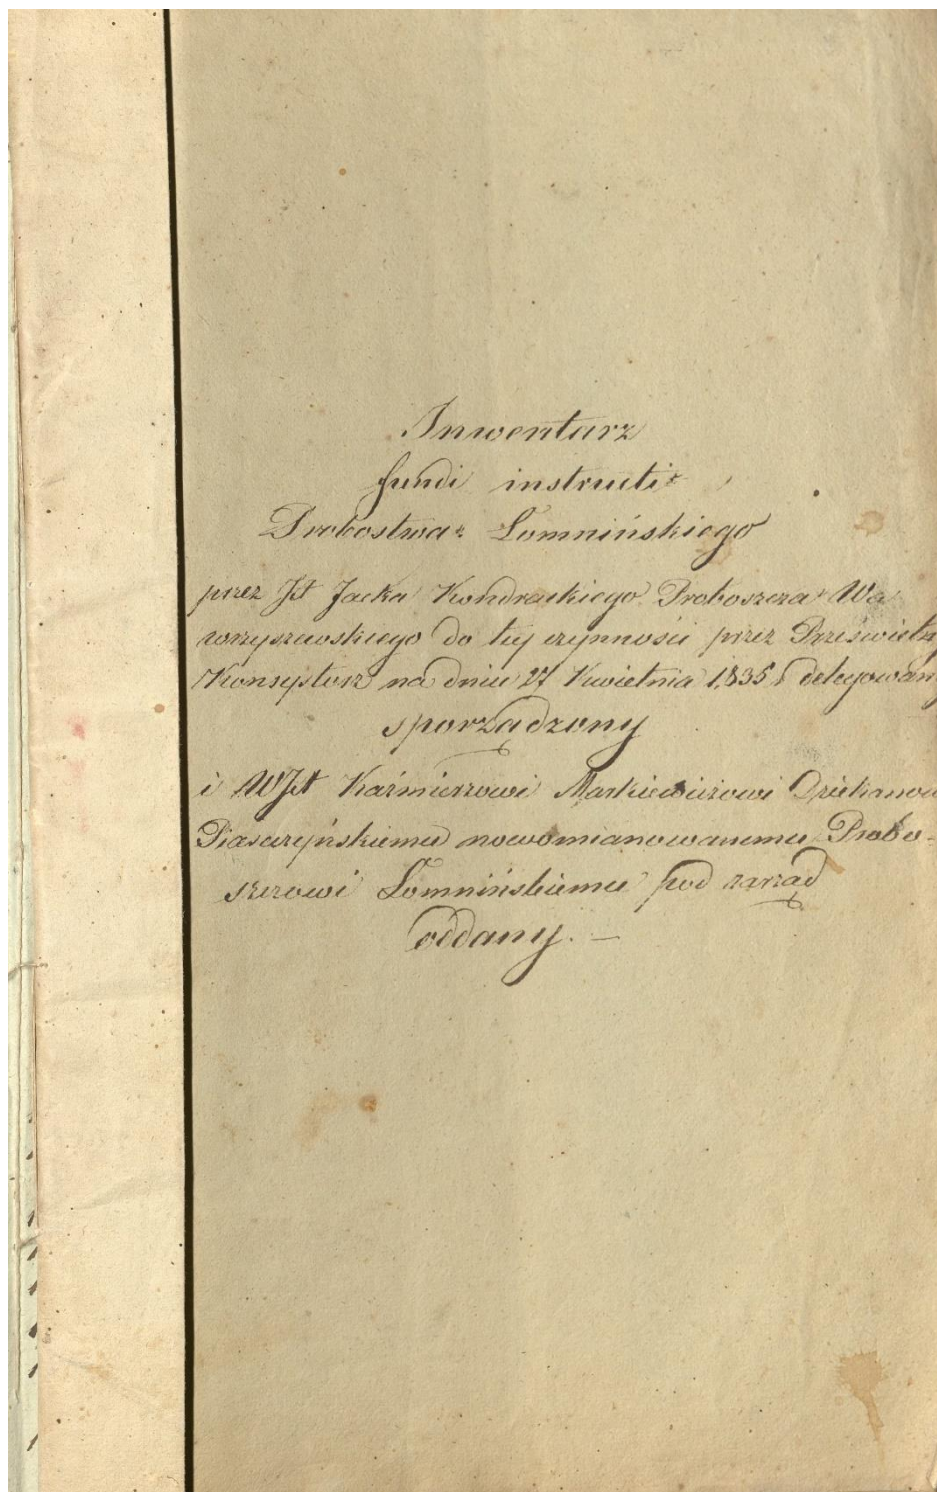 Inwentarz
fundi instructi
Probostwa Łomnińskiego
przez JX Jacka Kondrackiego Proboszcza Wa
wrzyszewskiego do tey czynności przez Prześwietny
Konsystorz na dniu 27 Kwietnia 1835 r delegowany
sporządzony
i WJX Kaźmierzowi Markiewiczowi Dziekanowi
Piaseczyńskiemu nowomianowanemu Probo-
szczowi Łomnińskiemu pod zarząd
oddany. —